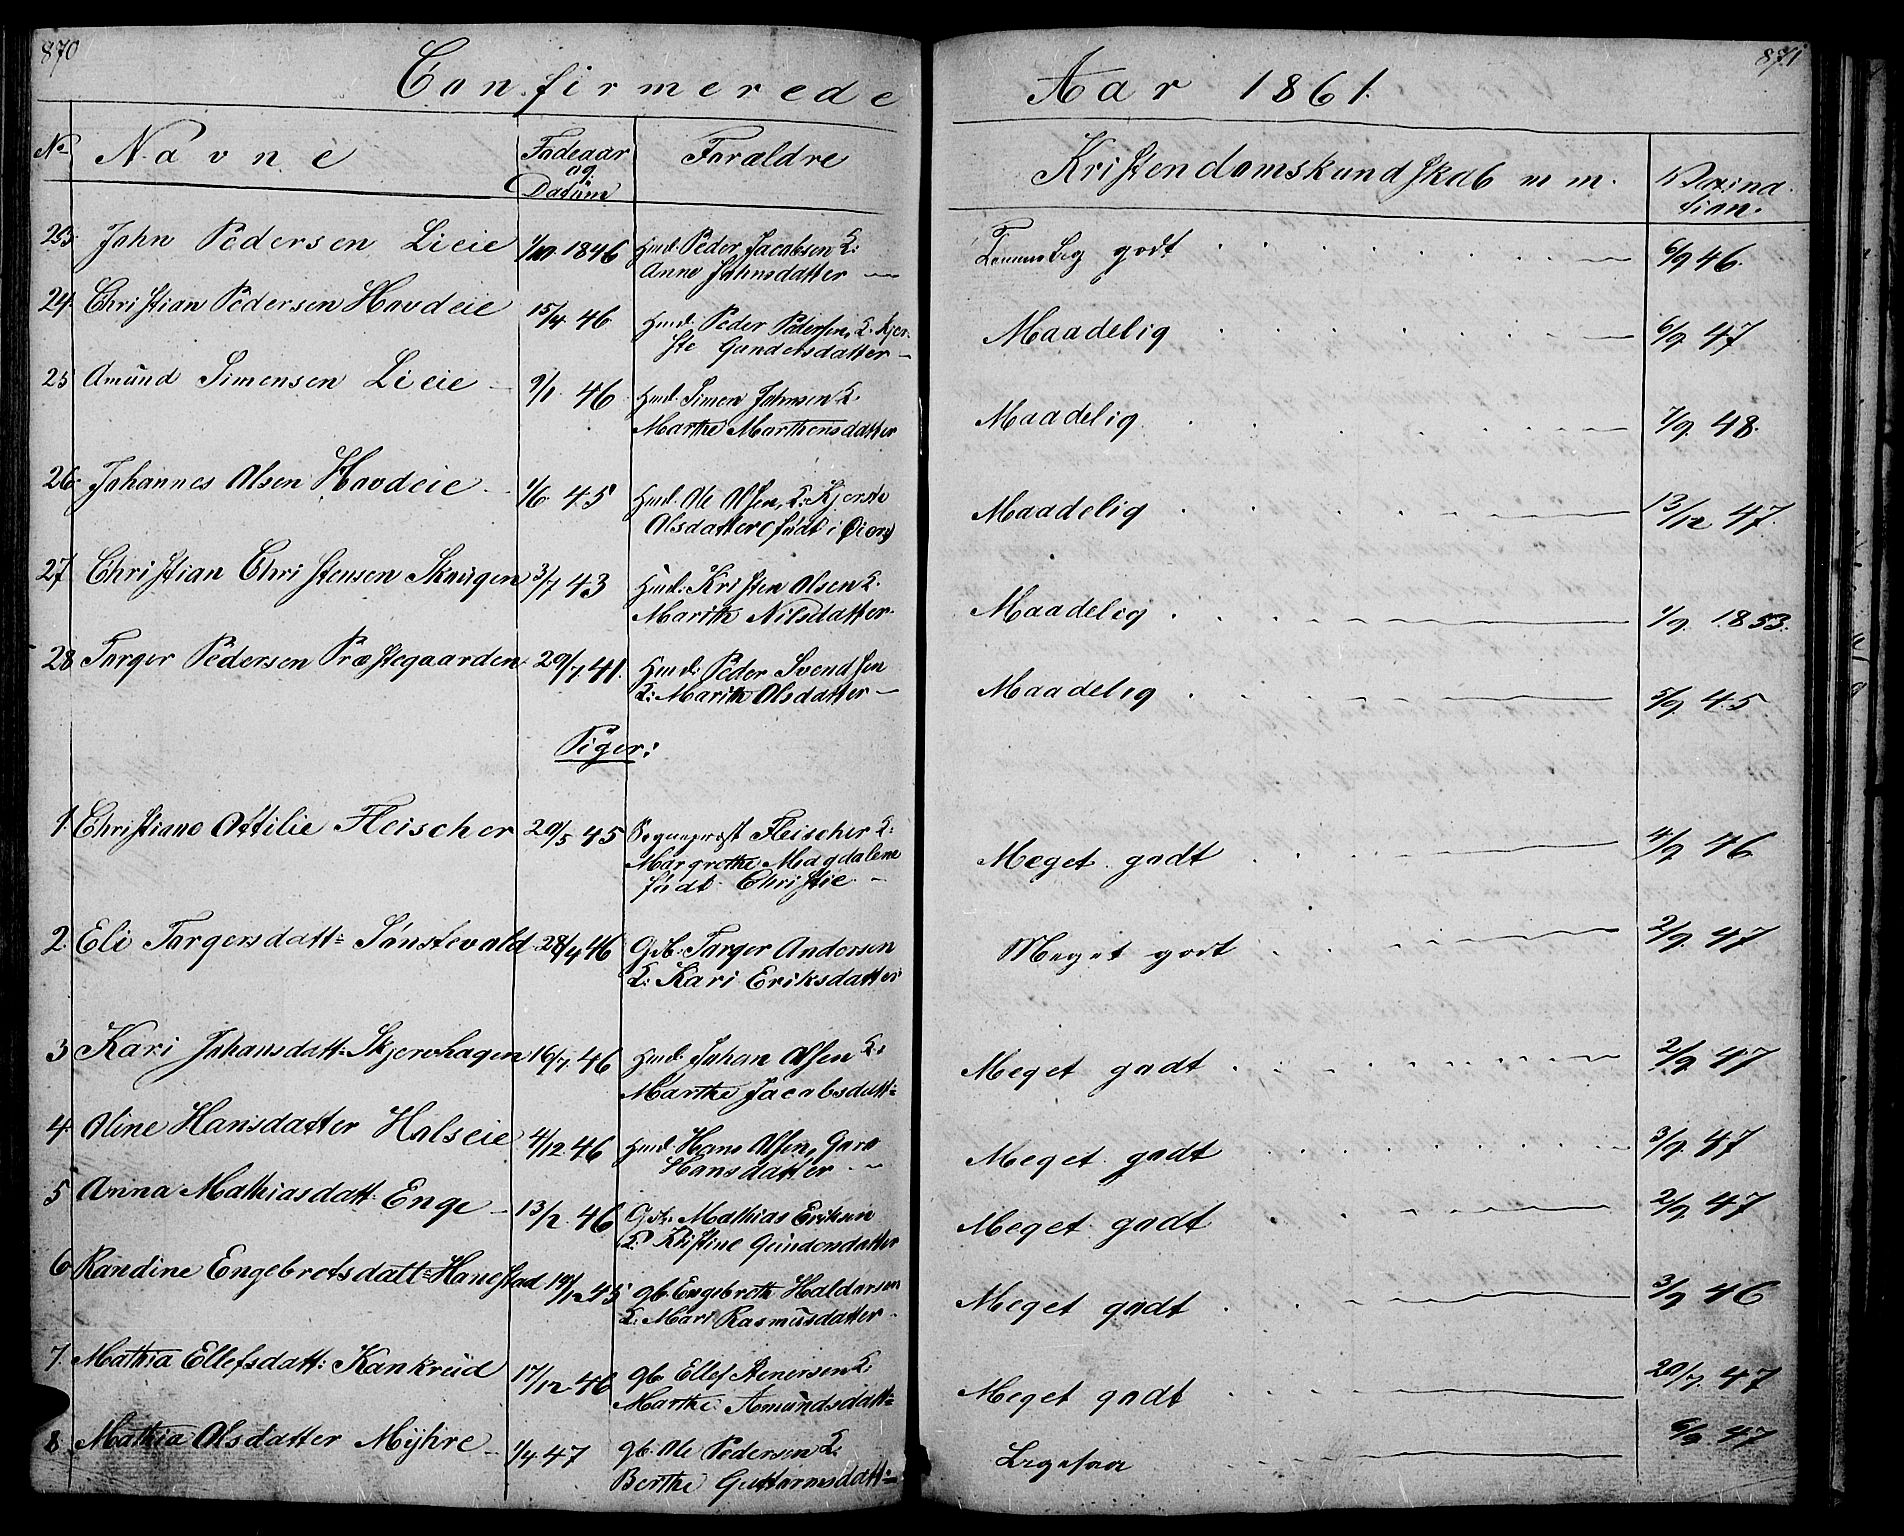 870
Confirmerede
Aar 1861.
871
No
Navne
Fødeaar og Datum
Forældre
Kristendomskundskab m m.
Vaxination.
23. John Pedersen Lieie 1/10 1846 Hmd: Peder Jacobsen K:
Anne Johnsdatter —
Temmelig godt 6/9 46.
24. Christian Pedersen Hovdeie 15/4 46 Hmd: Peder Pedersen, K. Kjer-
ste Gundersdatter —
Maadelig 6/9 47
25 Amund Simensen Lieie 9/1 46 Hmd: Simen Johnsen K:
Marthe Marthensdatter
Maadelig 7/9 48.
26. Johannes Olsen Hovdeie 1/6 45 Hmd. Ole Olsen, K: Kjerste
Olsdatter (født i Øier)
Maadelig 13/12 47.
27 Christian Christensen Skougen 3/7 43 Hmd: Kristen Olsen K:
Marith Nilsdatter.
Maadelig 1/9 1853.
28 Torger Pedersen Præstegaarden 29/7 41. Hmd: Peder Svendsen
K: Marith Olsdatter —
Maadelig 5/9 45
Piger:
1. Christiane Ottilie Fleischer 20/5 45 Sognepræst Fleischer K:
Margrethe Magdalene
født Christie —
Meget godt 4/9 46
2. Eli Torgersdatt= Sønstevold 28/9 46 Gb. Torger Andersen
K: Kari Eriksdatter
Meget godt 2/9 47
3 Kari Johansdatt= Skjervhagen 16/7 46 Hmd. Johan Olsen K:
Marthe Jacobsdatt=
Meget godt 2/9 47
4. Oline Hansdatter Halseie 4/12 46 Hmd: Hans Olsen, Goro
Hansdatter —
Meget godt 3/9 47
5 Anna Mathiasdatt: Enge 13/2 46 Gb: Mathias Eriksen
K: Kristine Gundersdatter
Meget godt 2/9 47
6 Randine Engebretsdatt= Hanestad 19/12 45 gb. Engebreth Haldorsen
K: Mari Rasmusdatter
Meget godt 3/9 46
7. Mathia Ellefsdatt: Kankrud 17/12 46 gb Ellef Stenersen K:
Marthe Amundsdatt=
Meget godt 20/7. 47
8 Mathia Olsdatter Myhre 1/4 47 gb. Ole Pedersen K:
Berthe Guttormsdatt=
Ligesaa 6/9 47